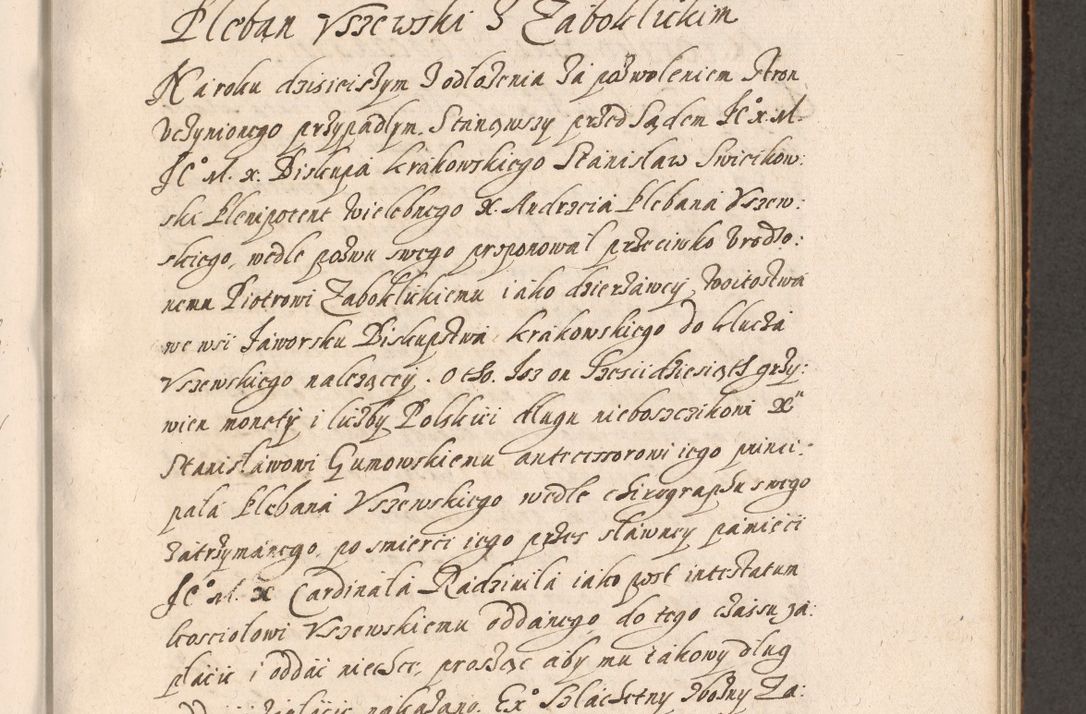 Pleban Vszewski Z Zaboklickim
Na roku dzisieiszym Z odłożenia Za pozwoleniem Stron
Vczynionego przypadłym. Stanąwszy przed Sądem Je° x. M.
Je° M. x. Biskupa Krakowskiego Stanisław Swieikow:
ski Plenipotent Wielebnego X. Andrzeia Plebana Vszew:
skiego, wedle pozwu swego proponował przeciwko Vrodzo:
nemu Piotrowi Zaboklickiemu iako dzierżawcy Woitostwa
we wsi Jaworsku Biskupstwa Krakowskiego do klucza
Vszewskiego należącey. O tho. Isz on sześcidziesiąth grzy:
wien monety i liczby Polskiei długu nieboszczikowi X"
Stanisławowi Gumowskiemu antecessorowi iego princi:
pała Plebana Vszewskiego wedle chirographu swego
zatrzymanego, po smierci iego przes sławney pamięci
Je° M. x Cardinała Radziwiła iako post intestatum
kosciołowi Vszewskiemu oddanego do tego czassu za:
płacic i oddać niechce, prosząc aby mu takowy dług
zapłacic nakazano. Ex° Szlachetny Zbożny Za: